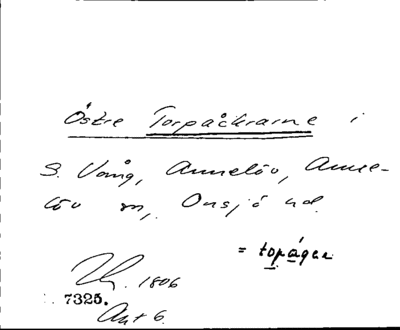 Östre Torpåckrarne i
S. Vång, Annelöv, Anne-
löv sn, Onsjö hd.
= topágɐr
1806
7325.
Akt 6.